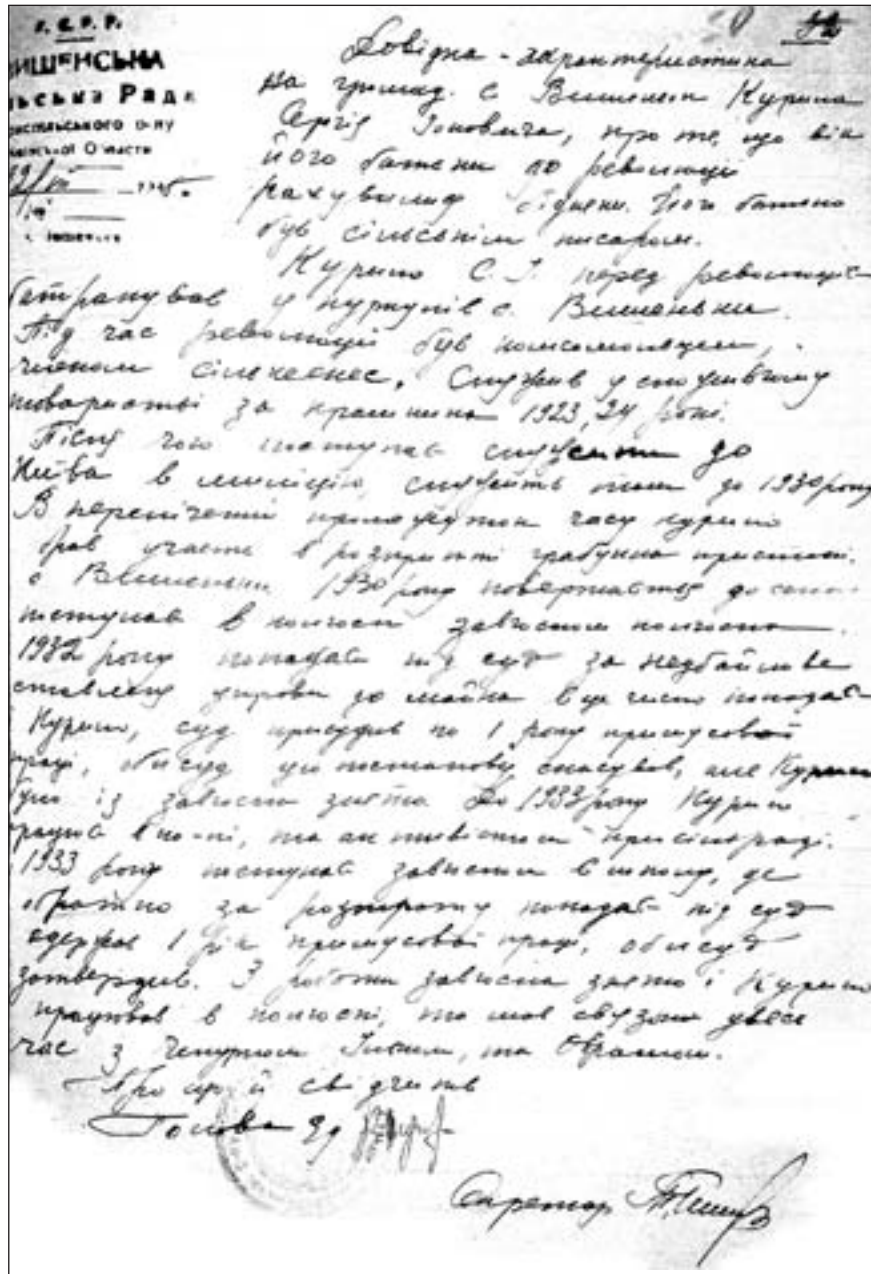 У.С.Р.Р.
ВИШЕНСЬКА
Рада
Довідка - характеристика
на громад. с. Вишеньки Курила
Сергія Йоновича, про те, що він
його батьки до революції
рахувались бідняки. Його батько
був сільським писарем.
Курило С. І. перед революцією
батракував у куркулів с. Вишеньки.
Під час революції був комсомольцем,
членом Служив у споживчому
товаристві за крамника 1923, 24 році.
Після чого поступає служити до
Київа в міліцію, служить там до 1930 року
В перелічений промежуток часу Курило
брав участь в розкритті грабунка пристані.
с. Вишеньки 1930 року повертається до села
поступає в колгосп завгоспом колгоспа.
1932 року попадає під суд за недбайливе
до майна в це число попадає
Курило, суд присудив по 1 року примусової
праці, облсуд цю постанову скасував, але Курила
було із завгоспа знято До 1933 року Курило
працює в та при сільраді.
1933 року поступає завгоспом в школу, де
обратно за розтрату попадає під суд
одержав 1 рік примусової праці, облсуд
затвердив. З роботи завгоспа знято і Курило
працював в колгоспі, та мав звязок увесь
час з
Про що й свідчить
Голова
Секретар